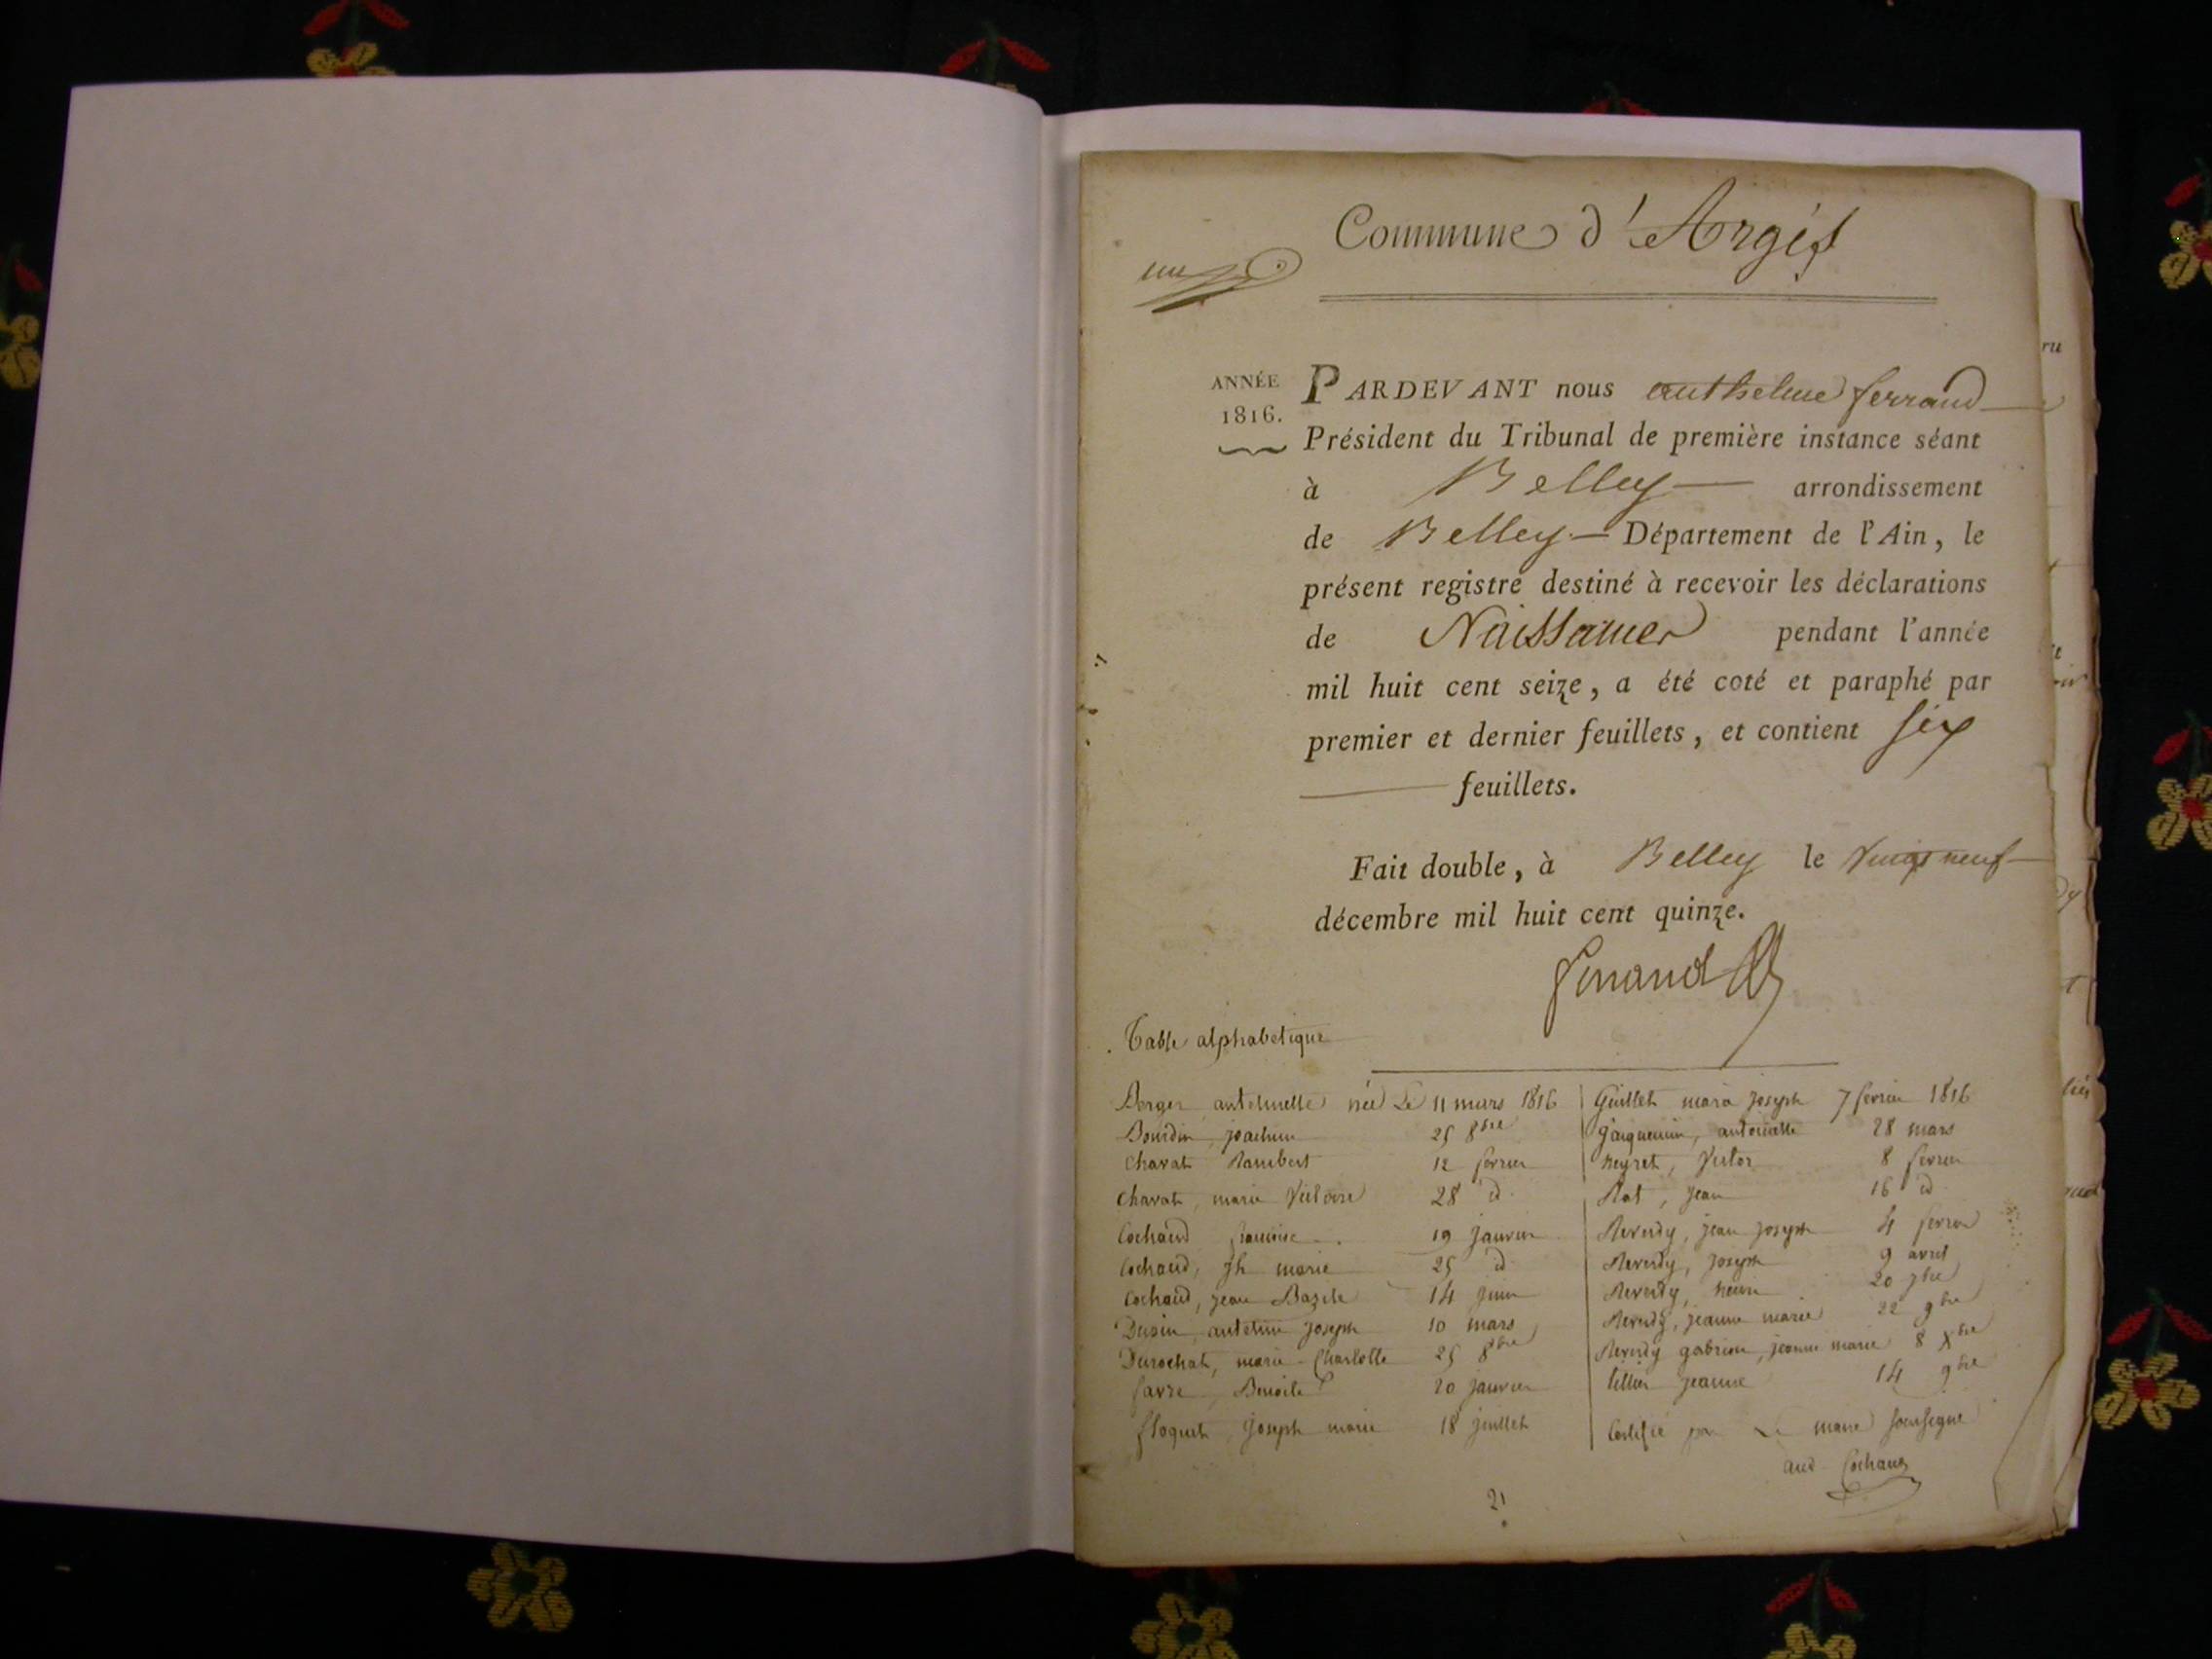 Commune d'Argis
un
ANNÉE
1816.
PARDEVANT nous anthelme ferrand
Président du Tribunal de première instance séant
à Belley arrondissement
de Belley Département de l'Ain, le
présent registre destiné à recevoir les déclarations
de Naissances pendant l'année
mil huit cent seize, a été coté et paraphé par
premier et dernier feuillets, et contient six
feuillets.
Fait double, à Belley le vingt neuf
décembre mil huit cent quinze.
ferrand
Table alphabetique
Berger anthelmette née Le 11 mars 1816
Bourdin, joachim 25 8bre
Charat Rambert 12 fevrier
Charat, marie Victoire 28 id
Cochaud francoise 19 janvier
Cochaud, Jh marie 25 id
Cochaud, jean Bazile 14 juin
antelme joseph 10 mars
Durochat, marie-Charlotte 25 8bre
favre, Benoite 20 janvier
floquet joseph marie 18 juillet
Guillet marie joseph 7 fevrier 1816
jacquemin, antoinette 28 mars
neyret, Victor 8 fevrier
Rat, jean 16 id
Reverdy, jean joseph 4 fevrier
Reverdy, joseph 9 avril
Reverdy, 20 7bre
Reverdy, jeanne marie 22 9bre
Reverdy jeanne marie 8 Xbre
tillier jeanne 14 9bre
Certifié par Le maire soussigné
Cochaud
ru